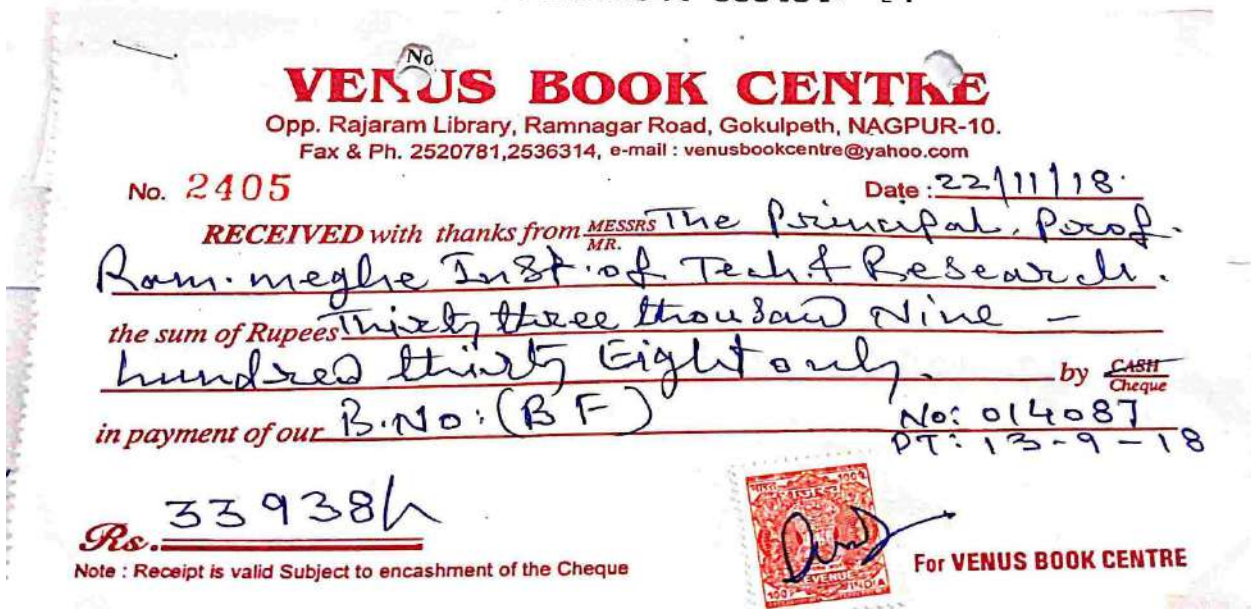 No
VENUS BOOK CENTRE
Opp. Rajaram Library, Ramnagar Road, Gokulpeth, NAGPUR-10.
Fax & Ph. 2520781,2536314, e-mail : venusbookcentre@yahoo.com
No. 2405 Date : 22/11/18.
RECEIVED with thanks from MESSRS MR. The Principal, Prof.
Ram. meghe Inst. of Tech. & Research.
the sum of Rupees Thirty three thousand Nine -
hundred thirty Eight only. by CASH Cheque
in payment of our B.No: (BF) No: 014087
DT: 13-9-18
Rs. 33938/-
Note : Receipt is valid Subject to encashment of the Cheque
REVENUE INDIA
For VENUS BOOK CENTRE